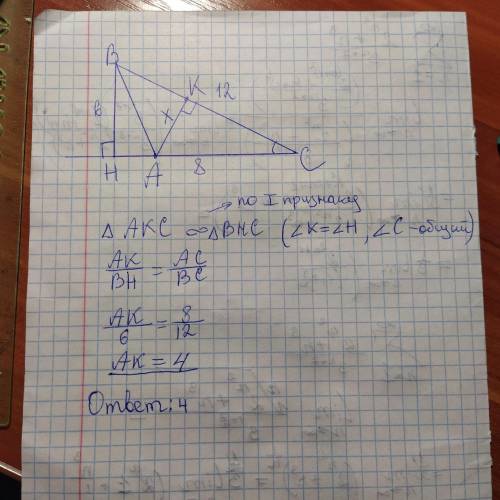 B
K 12
6 x
H A 8 C
→ по I признаку
△ AKC ∞ △BHC (∠K=∠H, ∠C-общий)
AK/BH = AC/BC
AK/6 = 8/12
AK = 4
Ответ: 4